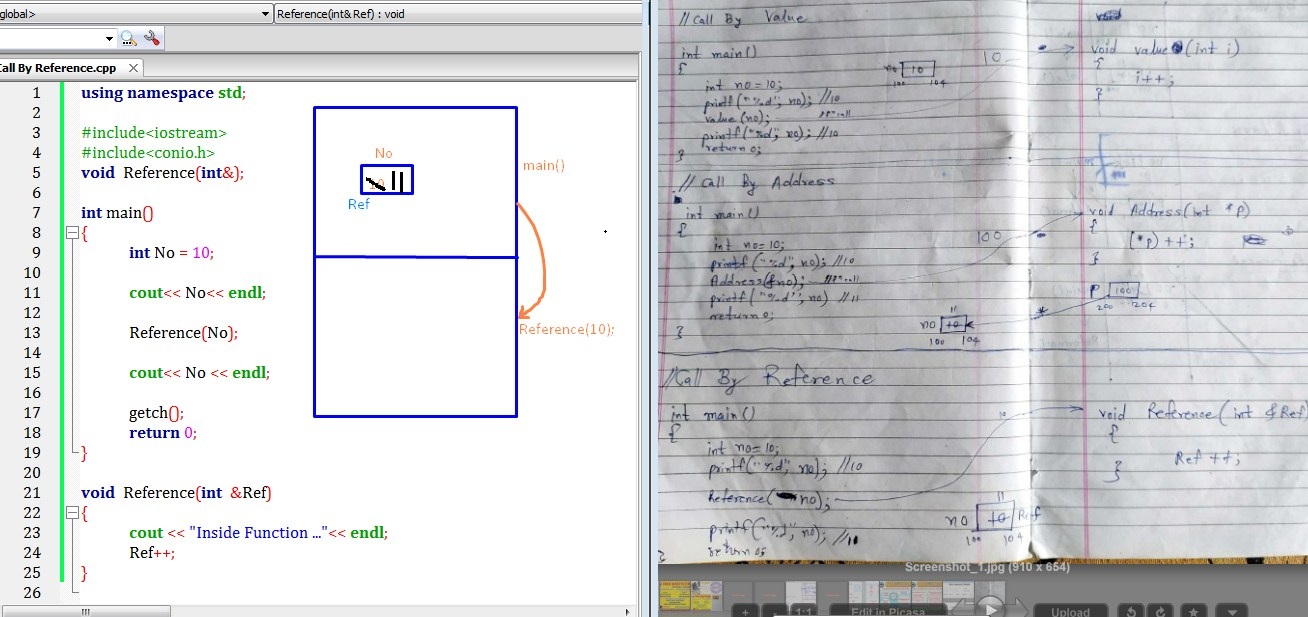 global>
Reference(int& Ref) : void
Call By Reference.cpp
1 using namespace std;
2
3 #include<iostream>
4 #include<conio.h>
5 void Reference(int&);
6
7 int main()
8 {
9 int No = 10;
10
11 cout<< No<< endl;
12
13 Reference(No);
14
15 cout<< No << endl;
16
17 getch();
18 return 0;
19 }
20
21 void Reference(int &Ref)
22 {
23 cout << "Inside Function ..."<< endl;
24 Ref++;
25 }
26
No
10 11
Ref
main()
Reference(10);
// Call By Value
int main()
{
int no=10;
printf("%d", no); //10
value(no);
printf("%d", no); //10
return 0;
}
no 10
100 104
10
void value(int i)
{
i++;
}
// Call By Address
int main()
{
int no=10;
printf("%d", no); //10
Address(&no);
printf("%d", no) //11
return 0;
}
100
void Address(int *p)
{
(*p)++;
}
P 100
200 204
11
no 10
100 104
*
//Call By Reference
int main()
{
int no=10;
printf("%d", no); //10
Reference(no);
printf("%d", no); //11
return 0;
}
10
void Reference(int &Ref)
{
Ref ++;
}
11
no 10 Ref
100 104
Screenshot_1.jpg (910 x 654)
1:1
Edit in Picasa
Upload